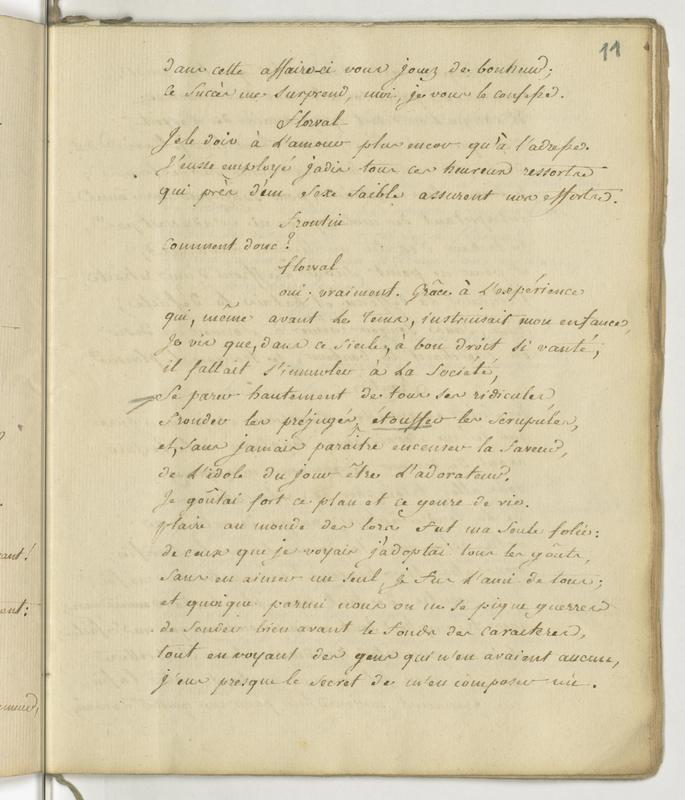 11
dans cette affaire-ci vous jouez de bonheur;
ce succès me surprend, moi, je vous le confesse.
florval
Je le dois à l'amour plus encor qu'à l'adresse.
J'eusse employé jadis tous ces heureux ressorts
qui près d'un sexe faible assurent nos efforts.
frontin
Comment donc?
florval
oui. vraiment. Grâce à l'expérience
qui, même avant le tems, instruisait mon enfance,
Je vis que, dans ce siecle, à bon droit si vanté,
il fallait s'immoler à la Société,
Se parer hautement de tous ses ridicules,
fronder les préjugés, étouffer les scrupules,
et, sans jamais paraître encenser la faveur,
de l'idole du jour être l'adorateur.
Je goûtai fort ce plan et ce genre de vie.
plaire au monde dès lors fut ma seule folie:
de ceux que je voyais j'adoptai tous les goûts,
sans en aimer un seul, je fus l'ami de tous;
et quoique parmi nous on ne se pique guerres
de sonder bien avant le fonds des caracteres,
tout en voyant des gens qui n'en avaient aucun,
j'eus presque le secret de m'en composer un.